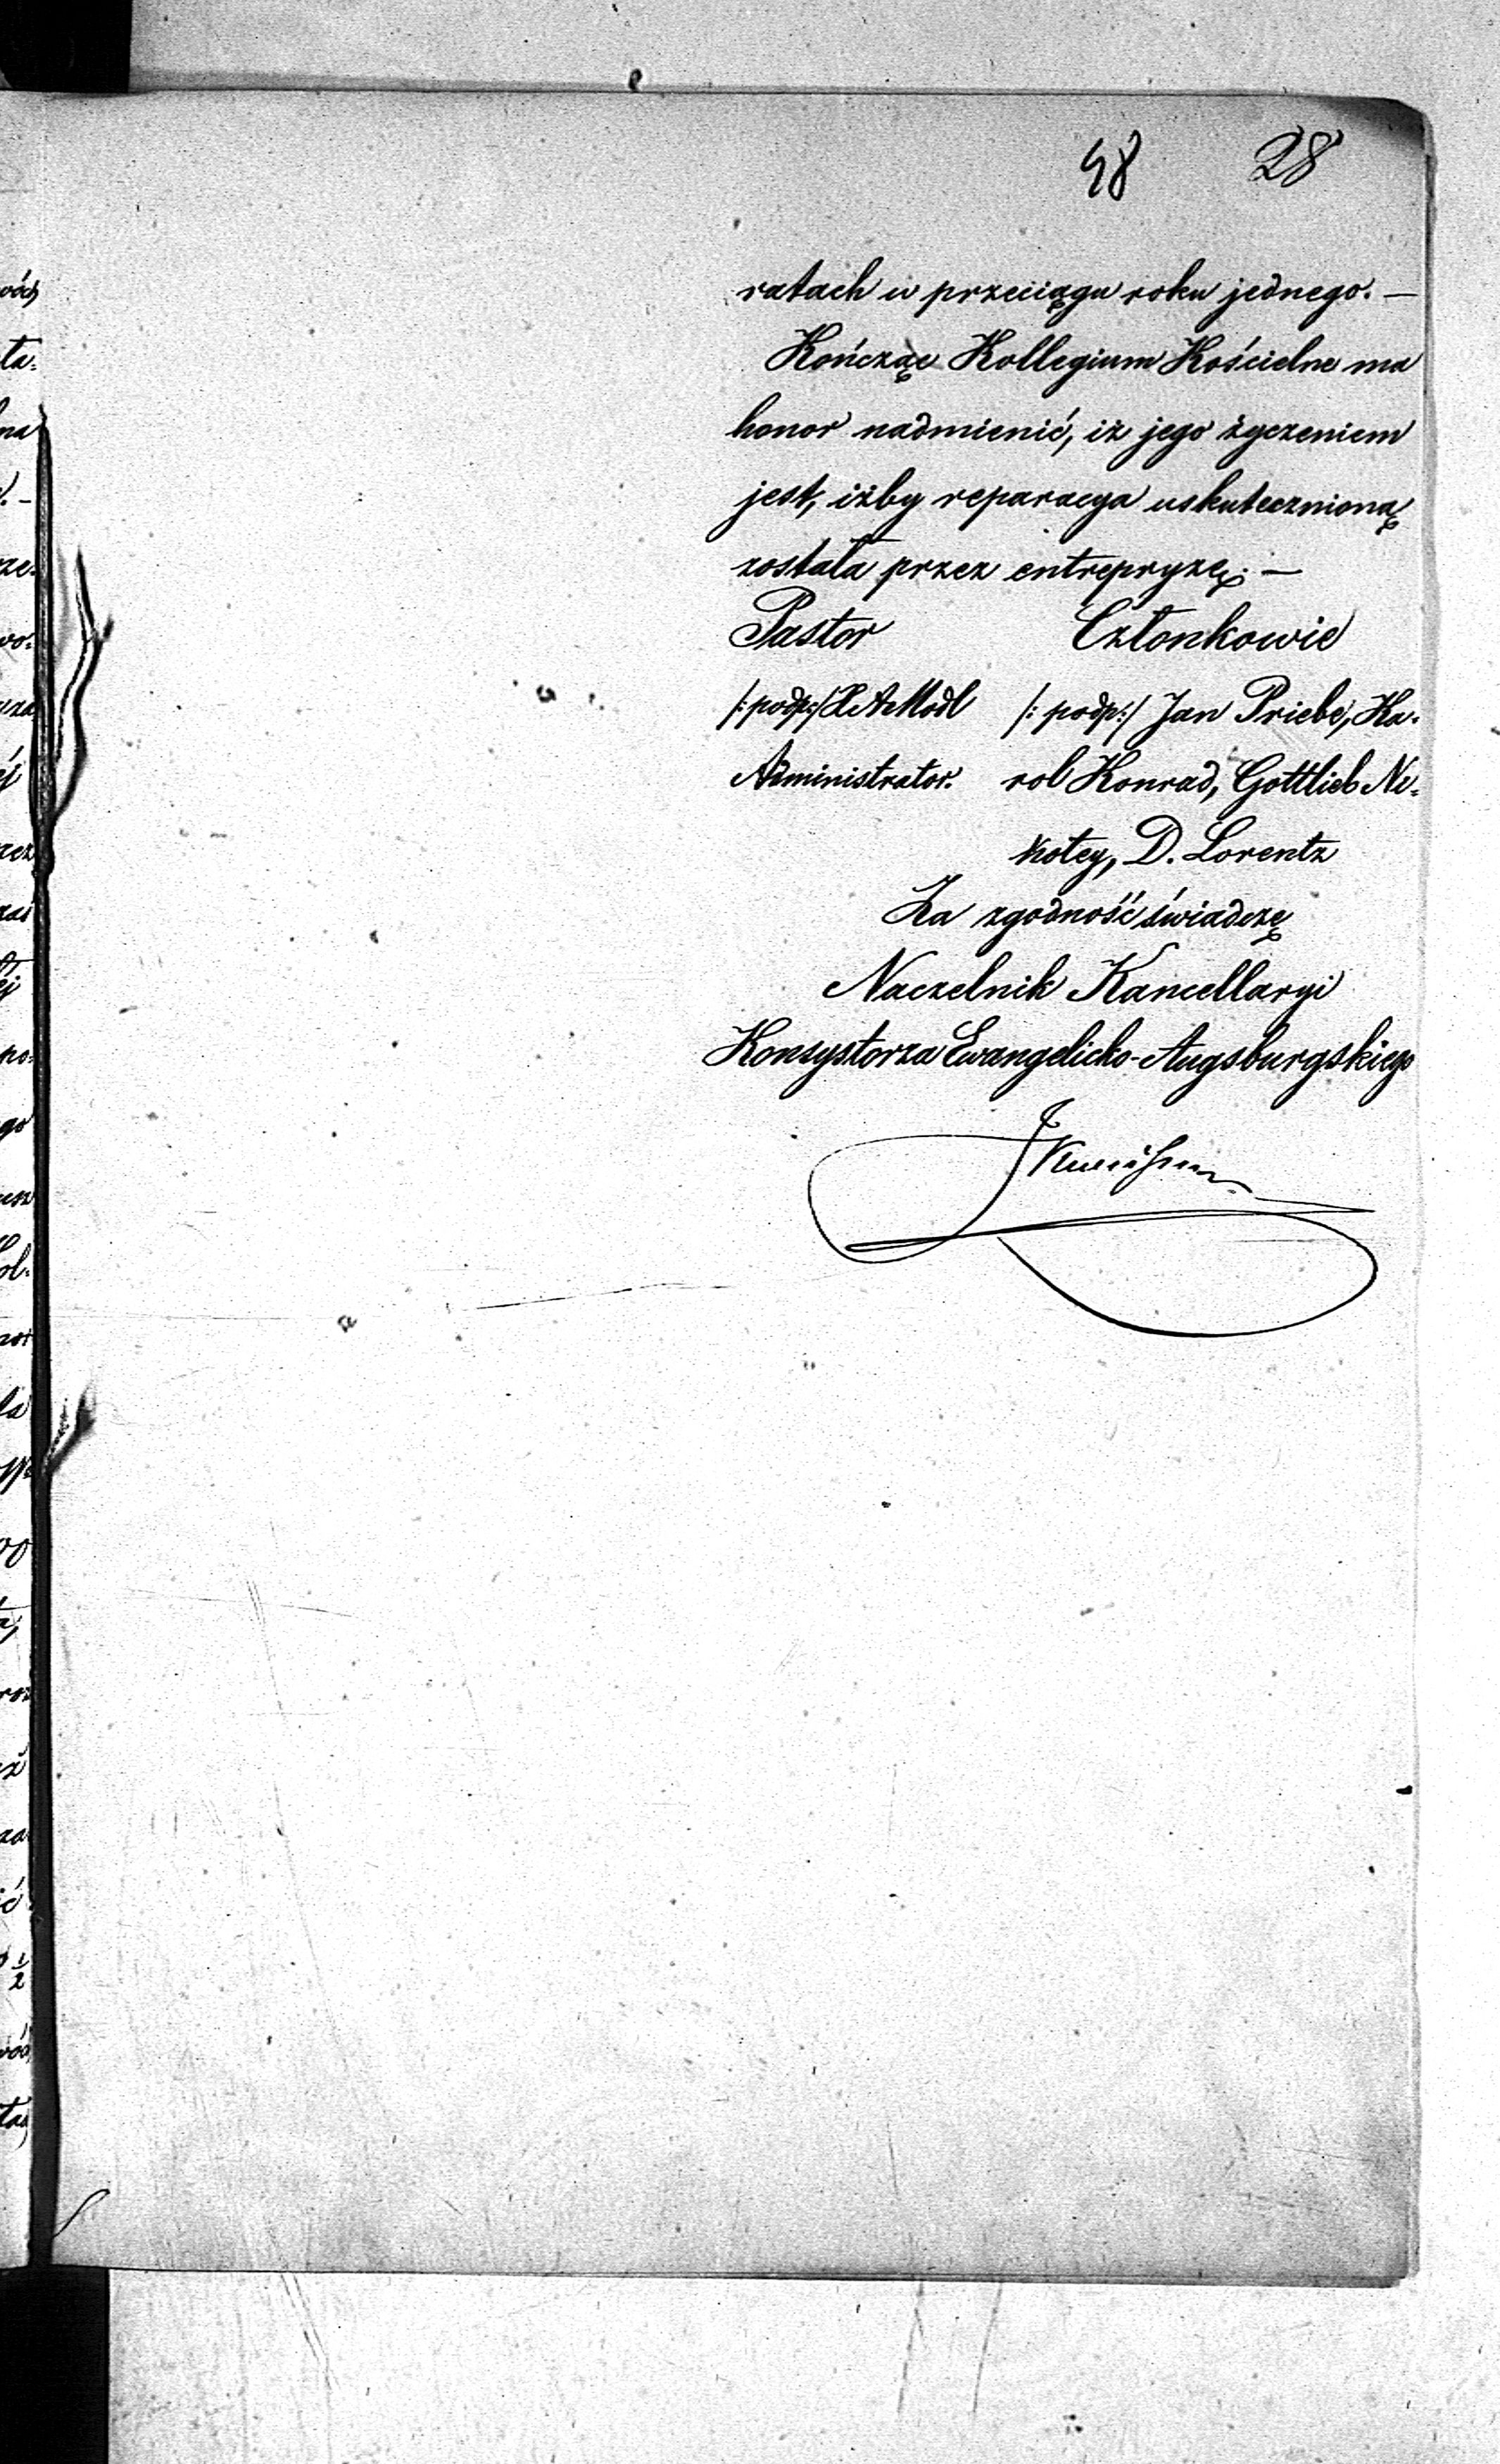 48 28
ratach w przeciągu roku jednego. —
Kończąc Kollegium Kościelne ma
honor nadmienić, iż jego życzeniem
jest, iżby reparacya uskutecznioną
została przez entrepryzę. —
Pastor Członkowie
/:podp:/ Modl /:podp:/ Jan Priebe, Ka-
Administrator. rol Konrad, Gottlieb Ne-
kotey, D. Lorentz
Za zgodność świadczę
Naczelnik Kancellaryi
Konsystorza Ewangelicko-Augsburgskiego